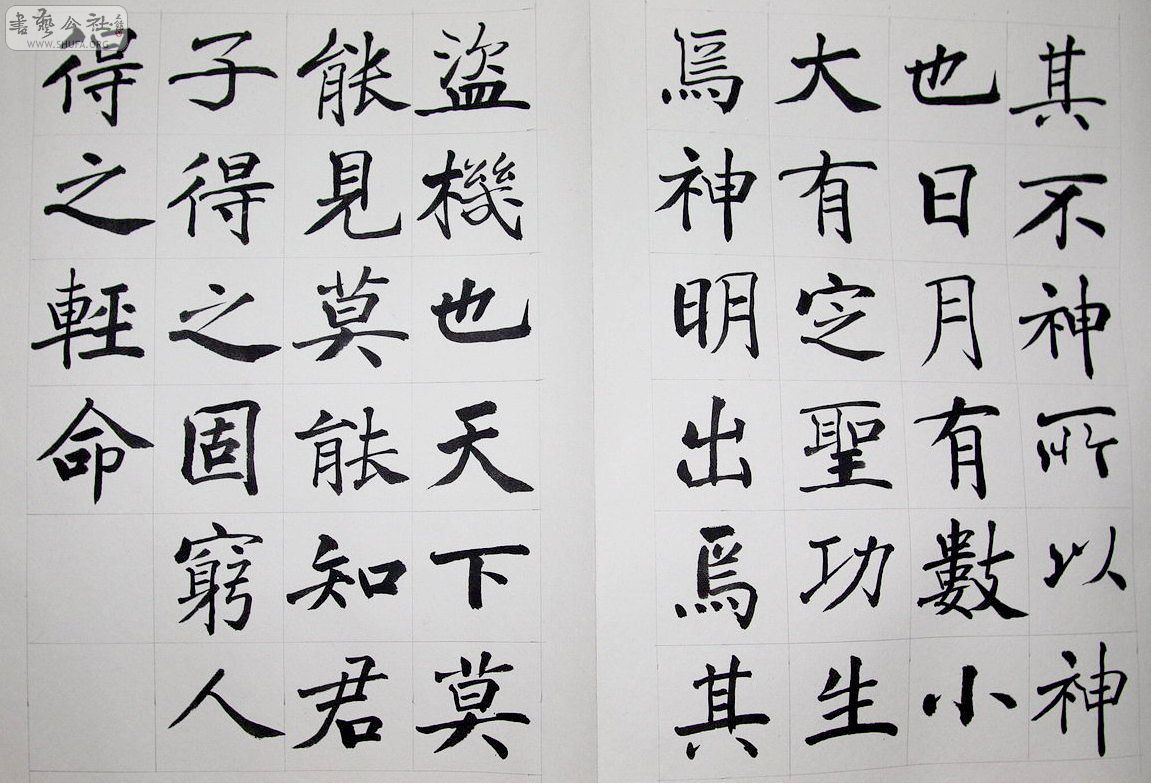 其不神所以神
也日月有數小
大有定聖功生
焉神明出焉其
盜機也天下莫
能見莫能知君
子得之固窮人
得之輕命
書藝公社
WWW.SHUFA.ORG